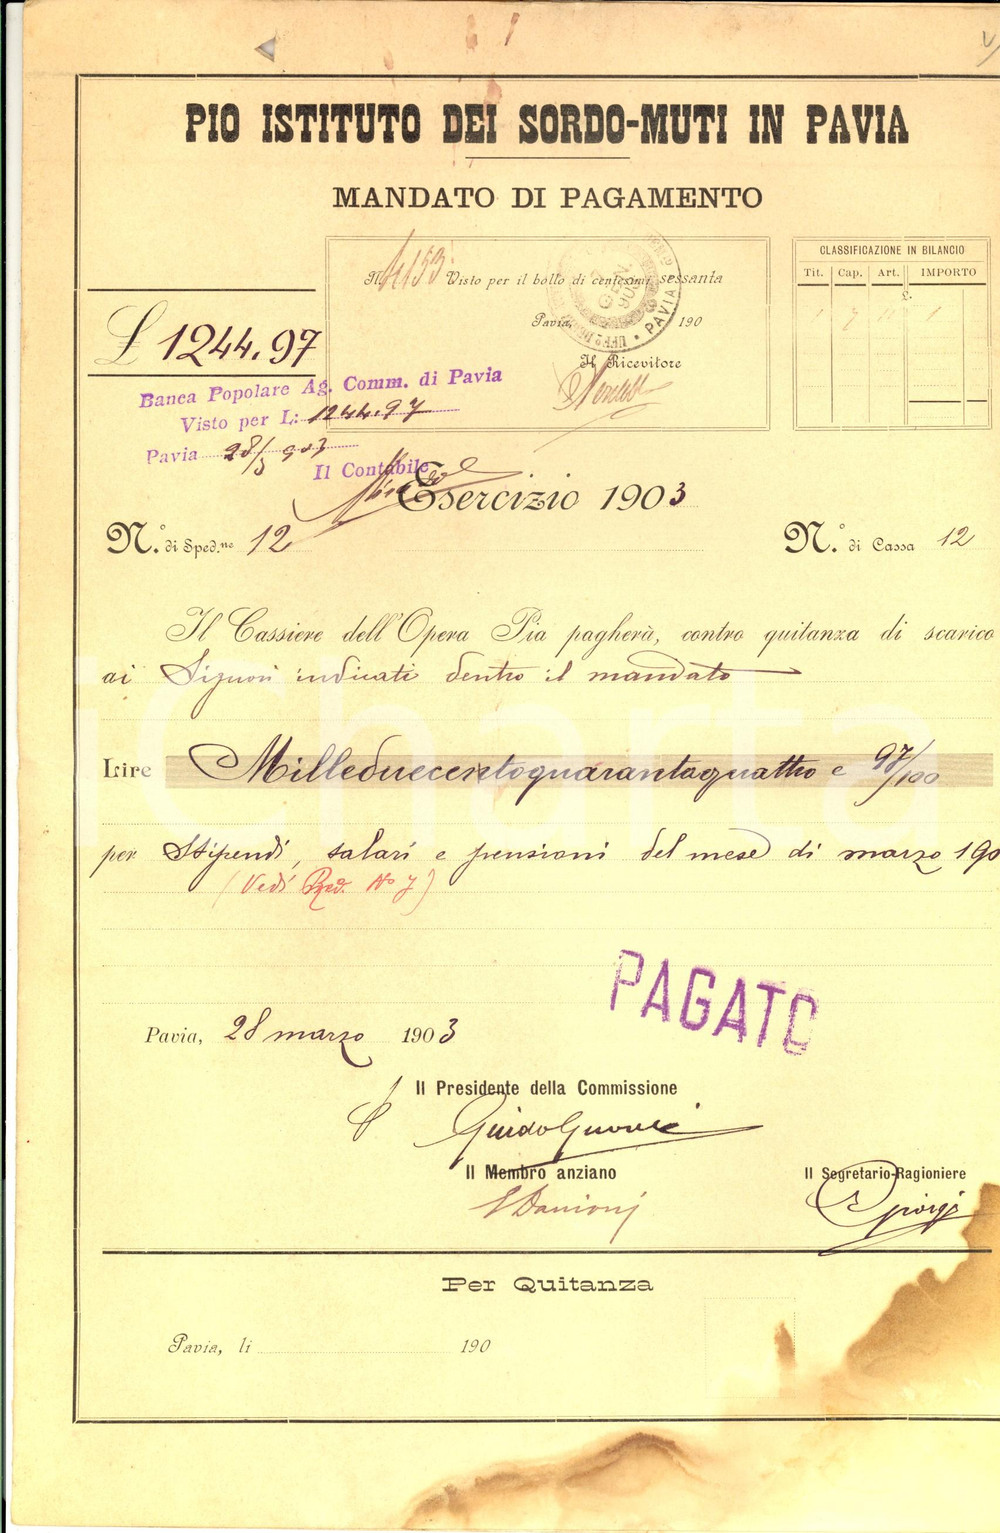 PIO ISTITUTO DEI SORDO-MUTI IN PAVIA
MANDATO DI PAGAMENTO
CLASSIFICAZIONE IN BILANCIO
Tit. Cap. Art. IMPORTO
£.
1 7
N. 4153 Visto per il bollo di centesimi sessanta
Pavia, 190
PAVIA
Il Ricevitore
£ 1244.97
Banca Popolare Ag. Comm. di Pavia
Visto per L: 1244.97
Pavia 28/3 903
Il Contabile
Esercizio 1903
N.° di Sped.ne 12
N.° di Cassa 12
Il Cassiere dell'Opera Pia pagherà, contro quitanza di scarico
ai Signori indicati dentro il mandato
Lire Milleduecentoquarantaquattro e 97/100
per Stipendi, salari e pensioni del mese di marzo 190
(Vedi Red. No 7)
PAGATO
Pavia, 28 marzo 1903
Il Presidente della Commissione
Il Membro anziano
Il Segretario-Ragioniere
Per Quitanza
Pavia, li 190
iCharta